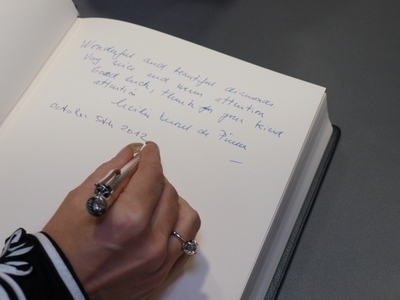 Wonderful and beautiful diamonds
Very nice and warm attention
Good luck, thanks for your kind
attention
de
october 2012